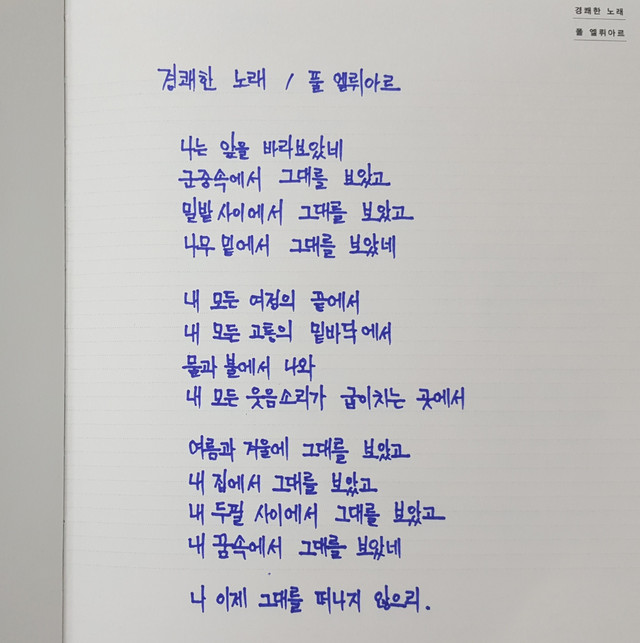 경쾌한 노래
폴 엘뤼아르
경쾌한 노래 / 폴 엘뤼아르
나는 앞을 바라보았네
군중속에서 그대를 보았고
밀밭 사이에서 그대를 보았고
나무 밑에서 그대를 보았네
내 모든 여정의 끝에서
내 모든 고통의 밑바닥에서
물과 불에서 나와
내 모든 웃음소리가 굽이치는 곳에서
여름과 겨울에 그대를 보았고
내 집에서 그대를 보았고
내 두팔 사이에서 그대를 보았고
내 꿈속에서 그대를 보았네
나 이제 그대를 떠나지 않으리.